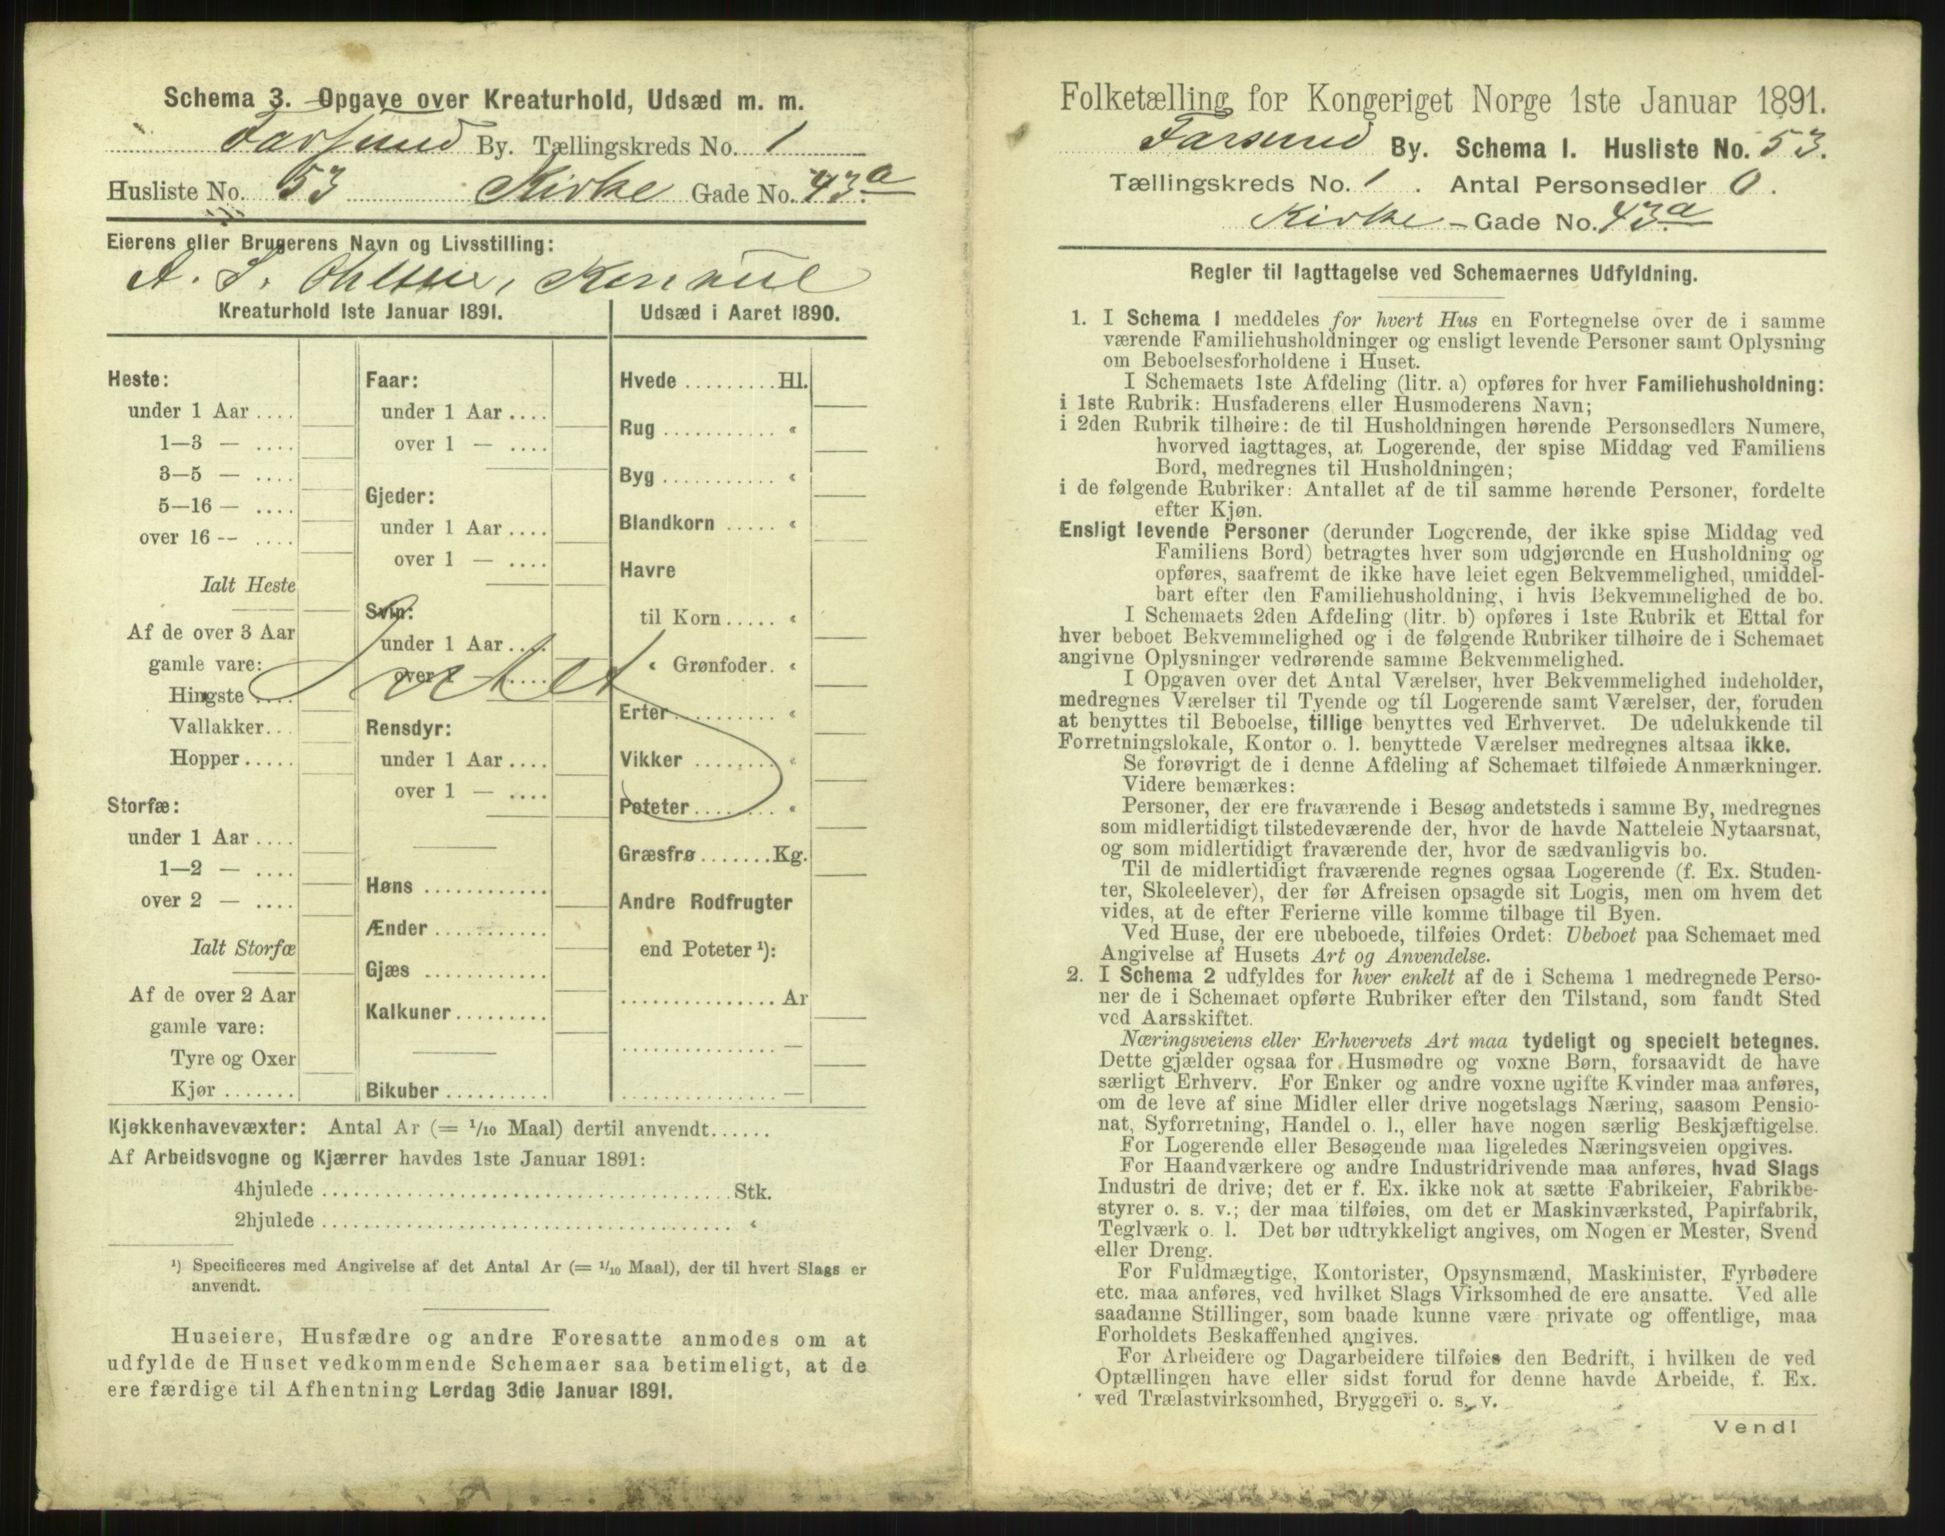 Schema 3. Opgave over Kreaturhold, Udsæd m. m.
Farsund By. Tællingskreds No. 1
Husliste No. 53 Kirke Gade No. 43a
Eierens eller Brugerens Navn og Livsstilling:
A. S. Ohlsen, Konsul
Kreaturhold 1ste Januar 1891.
Heste:
under 1 Aar ....
1—3 — ....
3—5 — ....
5—16 — ....
over 16 -- ....
Ialt Heste
Af de over 3 Aar
gamle vare:
Hingste ....
Vallakker...
Hopper.....
Storfæ:
under 1 Aar....
1—2 — ....
over 2 — ....
Ialt Storfæ
Af de over 2 Aar
gamle vare:
Tyre og Oxer
Kjør .......
Faar:
under 1 Aar ....
over 1 — ....
Gjeder:
under 1 Aar....
over 1 — ....
Svin:
under 1 Aar....
over 1 — .....
Intet
Rensdyr:
under 1 Aar....
over 1 — ....
Høns ............
Ænder ...........
Gjæs ............
Kalkuner.........
Bikuber ..........
Udsæd i Aaret 1890.
Hvede .........Hl.
Rug ........... «
Byg ........... «
Blandkorn ..... «
Havre
til Korn..... «
« Grønfoder. «
Erter.......... «
Vikker ........ «
Poteter........ «
Græsfrø.......Kg.
Andre Rodfrugter
end Poteter ¹):
............... Ar
............... —
............... —
Kjøkkenhavevæxter: Antal Ar (= 1/10 Maal) dertil anvendt......
Af Arbeidsvogne og Kjærrer havdes 1ste Januar 1891:
4hjulede ......................................Stk.
2hjulede ...................................... «
¹) Specificeres med Angivelse af det Antal Ar (= 1/10 Maal), der til hvert Slags er
anvendt.
Huseiere, Husfædre og andre Foresatte anmodes om at
udfylde de Huset vedkommende Schemaer saa betimeligt, at de
ere færdige til Afhentning Lørdag 3die Januar 1891.
Folketælling for Kongeriget Norge 1ste Januar 1891.
Farsund By. Schema I. Husliste No. 53.
Tællingskreds No. 1 . Antal Personsedler 0.
Kirke - Gade No. 43a
Regler til Iagttagelse ved Schemaernes Udfyldning.
1. I Schema 1 meddeles for hvert Hus en Fortegnelse over de i samme
værende Familiehusholdninger og ensligt levende Personer samt Oplysning
om Beboelsesforholdene i Huset.
I Schemaets 1ste Afdeling (litr. a) opføres for hver Familiehusholdning:
i 1ste Rubrik: Husfaderens eller Husmoderens Navn;
i 2den Rubrik tilhøire: de til Husholdningen hørende Personsedlers Numere,
hvorved iagttages, at Logerende, der spise Middag ved Familiens
Bord, medregnes til Husholdningen;
i de følgende Rubriker: Antallet af de til samme hørende Personer, fordelte
efter Kjøn.
Ensligt levende Personer (derunder Logerende, der ikke spise Middag ved
Familiens Bord) betragtes hver som udgjørende en Husholdning og
opføres, saafremt de ikke have leiet egen Bekvemmelighed, umiddel-
bart efter den Familiehusholdning, i hvis Bekvemmelighed de bo.
I Schemaets 2den Afdeling (litr. b) opføres i 1ste Rubrik et Ettal for
hver beboet Bekvemmelighed og i de følgende Rubriker tilhøire de i Schemaet
angivne Oplysninger vedrørende samme Bekvemmelighed.
I Opgaven over det Antal Værelser, hver Bekvemmelighed indeholder,
medregnes Værelser til Tyende og til Logerende samt Værelser, der, foruden
at benyttes til Beboelse, tillige benyttes ved Erhvervet. De udelukkende til
Forretningslokale, Kontor o. l. benyttede Værelser medregnes altsaa ikke.
Se forøvrigt de i denne Afdeling af Schemaet tilføiede Anmærkninger.
Videre bemærkes:
Personer, der ere fraværende i Besøg andetsteds i samme By, medregnes
som midlertidigt tilstedeværende der, hvor de havde Natteleie Nytaarsnat,
og som midlertidigt fraværende der, hvor de sædvanligvis bo.
Til de midlertidigt fraværende regnes ogsaa Logerende (f. Ex. Studen-
ter, Skoleelever), der før Afreisen opsagde sit Logis, men om hvem det
vides, at de efter Ferierne ville komme tilbage til Byen.
Ved Huse, der ere ubeboede, tilføies Ordet: Ubeboet paa Schemaet med
Angivelse af Husets Art og Anvendelse.
2. I Schema 2 udfyldes for hver enkelt af de i Schema 1 medregnede Perso-
ner de i Schemaet opførte Rubriker efter den Tilstand, som fandt Sted
ved Aarsskiftet.
Næringsveiens eller Erhvervets Art maa tydeligt og specielt betegnes.
Dette gjælder ogsaa for Husmødre og voxne Børn, forsaavidt de have
særligt Erhverv. For Enker og andre voxne ugifte Kvinder maa anføres,
om de leve af sine Midler eller drive nogetslags Næring, saasom Pensio-
nat, Syforretning, Handel o. l., eller have nogen særlig Beskjæftigelse.
For Logerende eller Besøgende maa ligeledes Næringsveien opgives.
For Haandværkere og andre Industridrivende maa anføres, hvad Slags
Industri de drive; det er f. Ex. ikke nok at sætte Fabrikeier, Fabrikbe-
styrer o. s. v.; der maa tilføies, om det er Maskinværksted, Papirfabrik,
Teglværk o. l. Det bør udtrykkeligt angives, om Nogen er Mester, Svend
eller Dreng.
For Fuldmægtige, Kontorister, Opsynsmænd, Maskinister, Fyrbødere
etc. maa anføres, ved hvilket Slags Virksomhed de ere ansatte. Ved alle
saadanne Stillinger, som baade kunne være private og offentlige, maa
Forholdets Beskaffenhed angives.
For Arbeidere og Dagarbeidere tilføies den Bedrift, i hvilken de ved
Optællingen have eller sidst forud for denne havde Arbeide, f. Ex.
ved Trælastvirksomhed, Bryggeri o. s. v.
Vend!